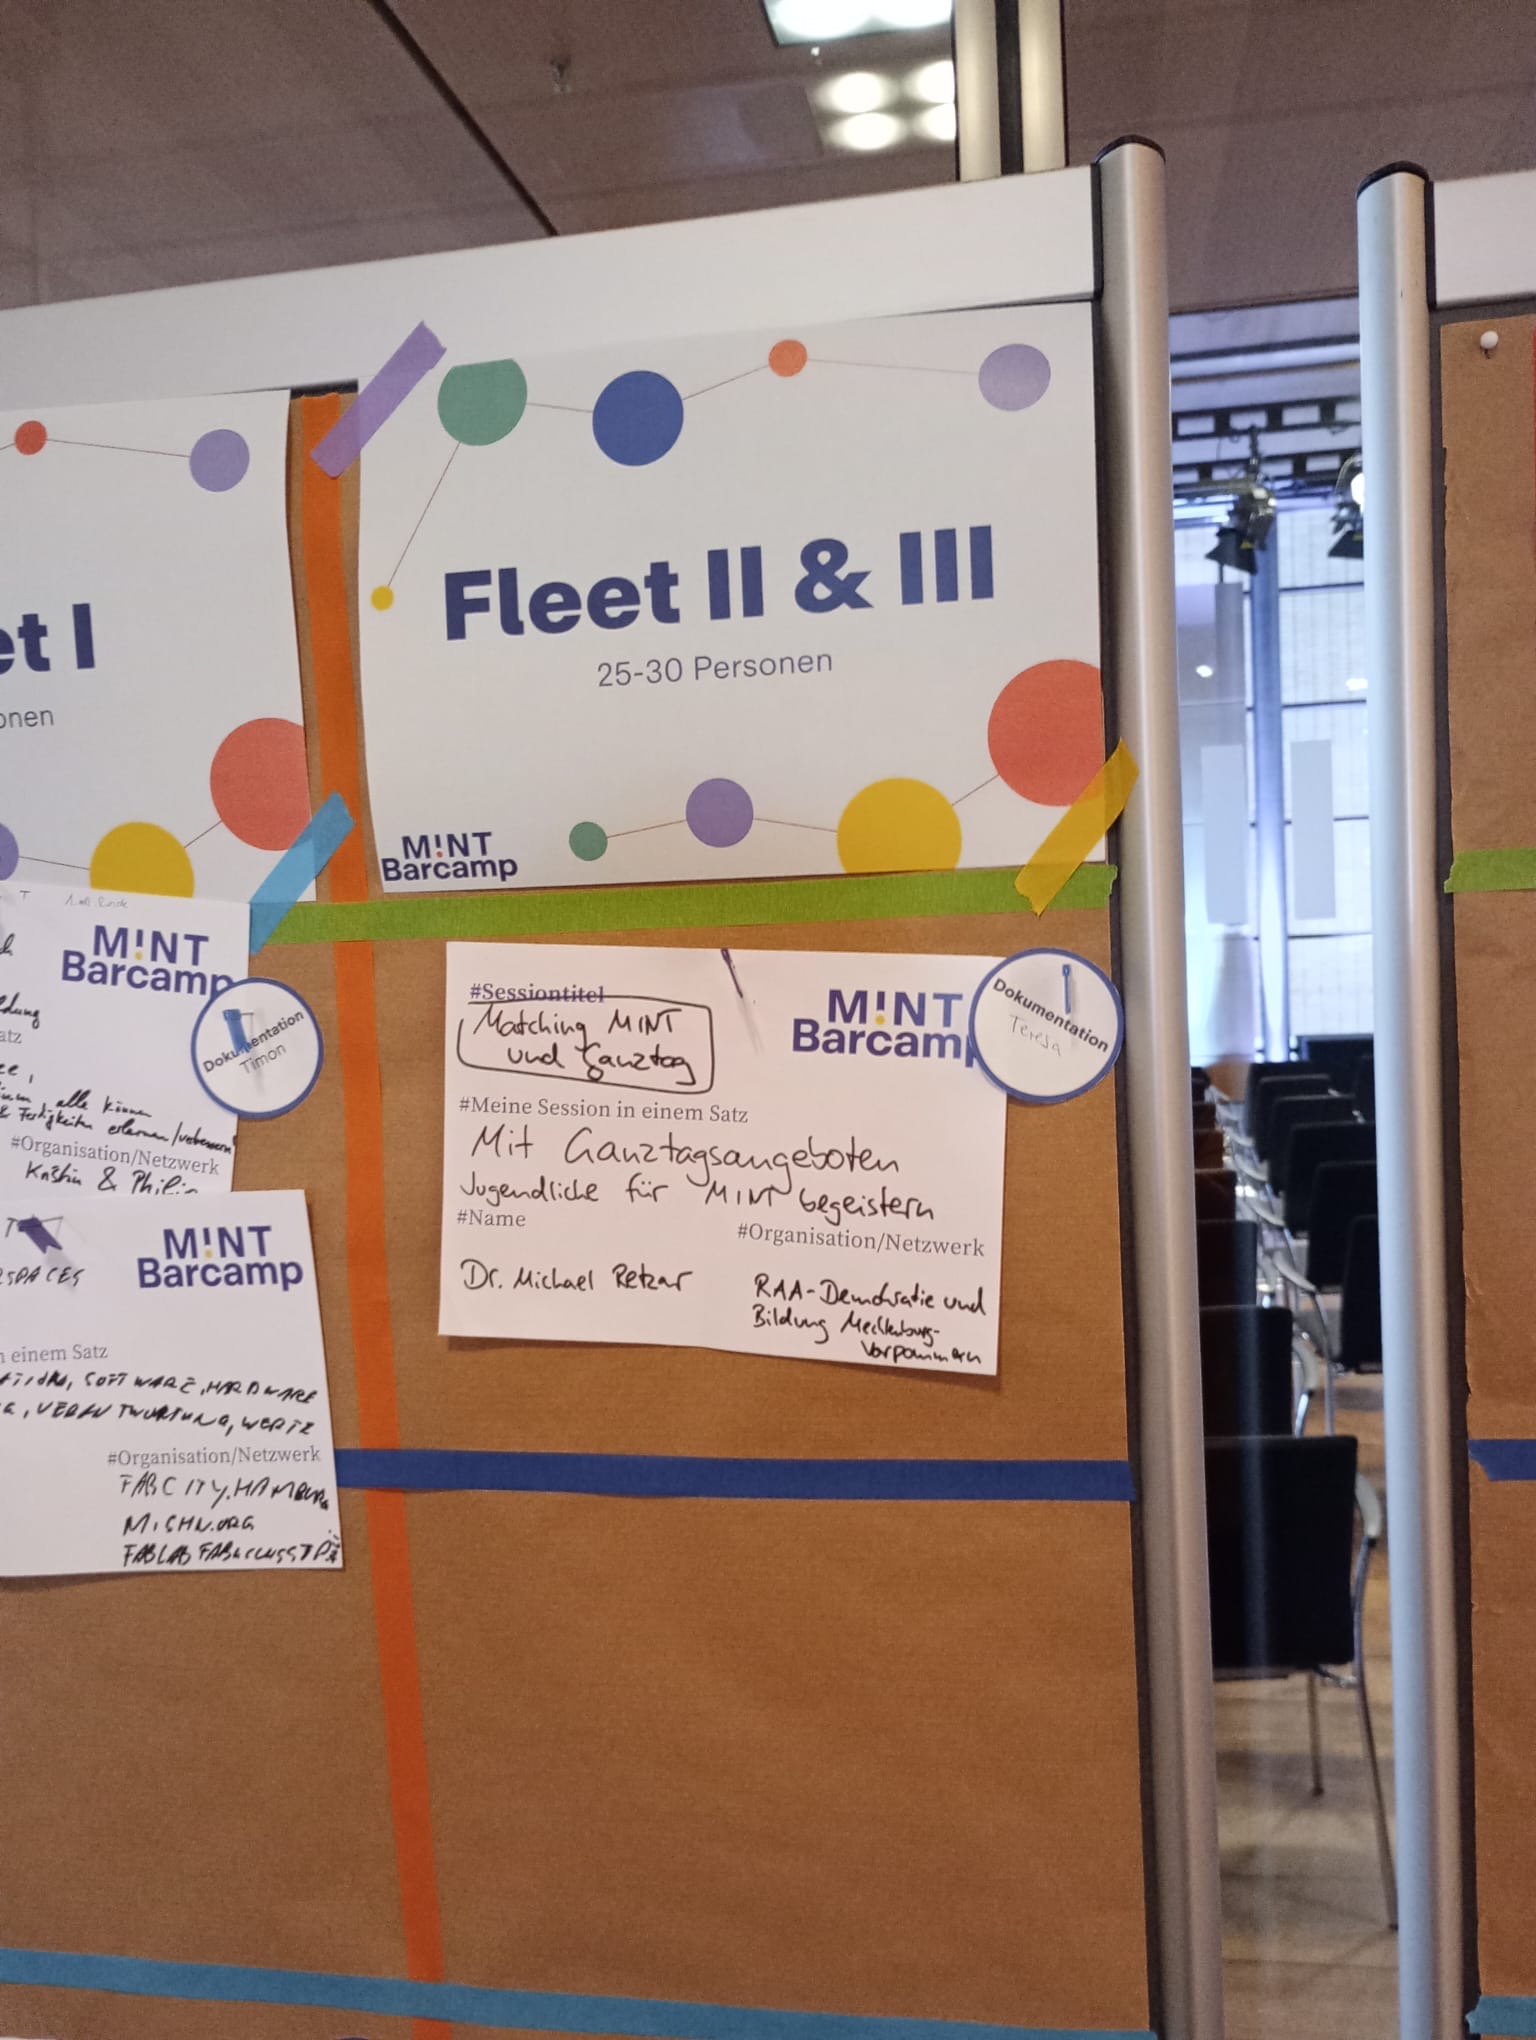 et I
onen
Fleet II & III
25-30 Personen
M!NT
Barcamp
M!NT
Barcamp
Dokumentation
Timon
alle können
& Fertigkeiten erlernen/verbessern
#Organisation/Netzwerk
Kristin & Philip
M!NT
Barcamp
n einem Satz
SOFTWARE, HARDWARE
, VERANTWORTUNG, WERTE
#Organisation/Netzwerk
FABCITY.HAMBURG
FABLAB
#Sessiontitel
Matching MINT
und Ganztag
M!NT
Barcamp
Dokumentation
Teresa
#Meine Session in einem Satz
Mit Ganztagsangeboten
Jugendliche für MINT begeistern
#Name
#Organisation/Netzwerk
Dr. Michael Retzar
RAA-Demokratie und
Bildung Mecklenburg-
Vorpommern